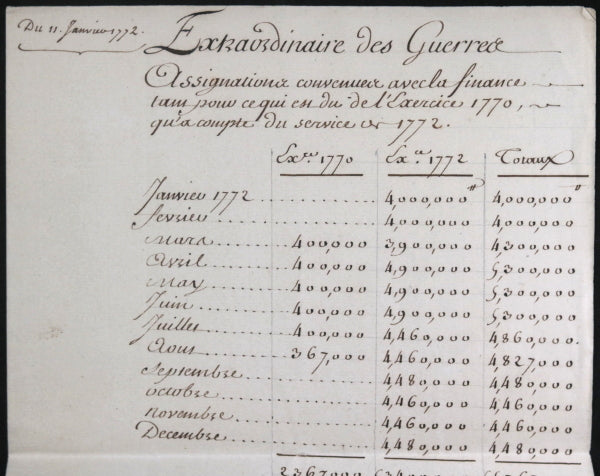 Du 11. Janvier 1772.
Extraordinaire des Guerres
Assignations convenues avec la finance
tant pour ce qui est du de l'Exercice 1770,
qu'a compte du service de 1772.
Ex.ce 1770 Ex.ce 1772 Totaux
Janvier 1772 .......... 4,000,000 4,000,000
fevrier .......... 4,000,000 4,000,000
Mars .......... 400,000 3,900,000 4,300,000
Avril .......... 400,000 4,900,000 5,300,000
May .......... 400,000 4,900,000 5,300,000
Juin .......... 400,000 4,900,000 5,300,000
Juillet .......... 400,000 4,460,000 4,860,000.
Aout .......... 367,000 4,460,000 4,827,000
Septembre .......... 4,480,000 4,480,000
Octobre .......... 4,460,000 4,460,000
Novembre .......... 4,460,000 4,460,000
Decembre .......... 4,480,000 4,480,000
2,367,000